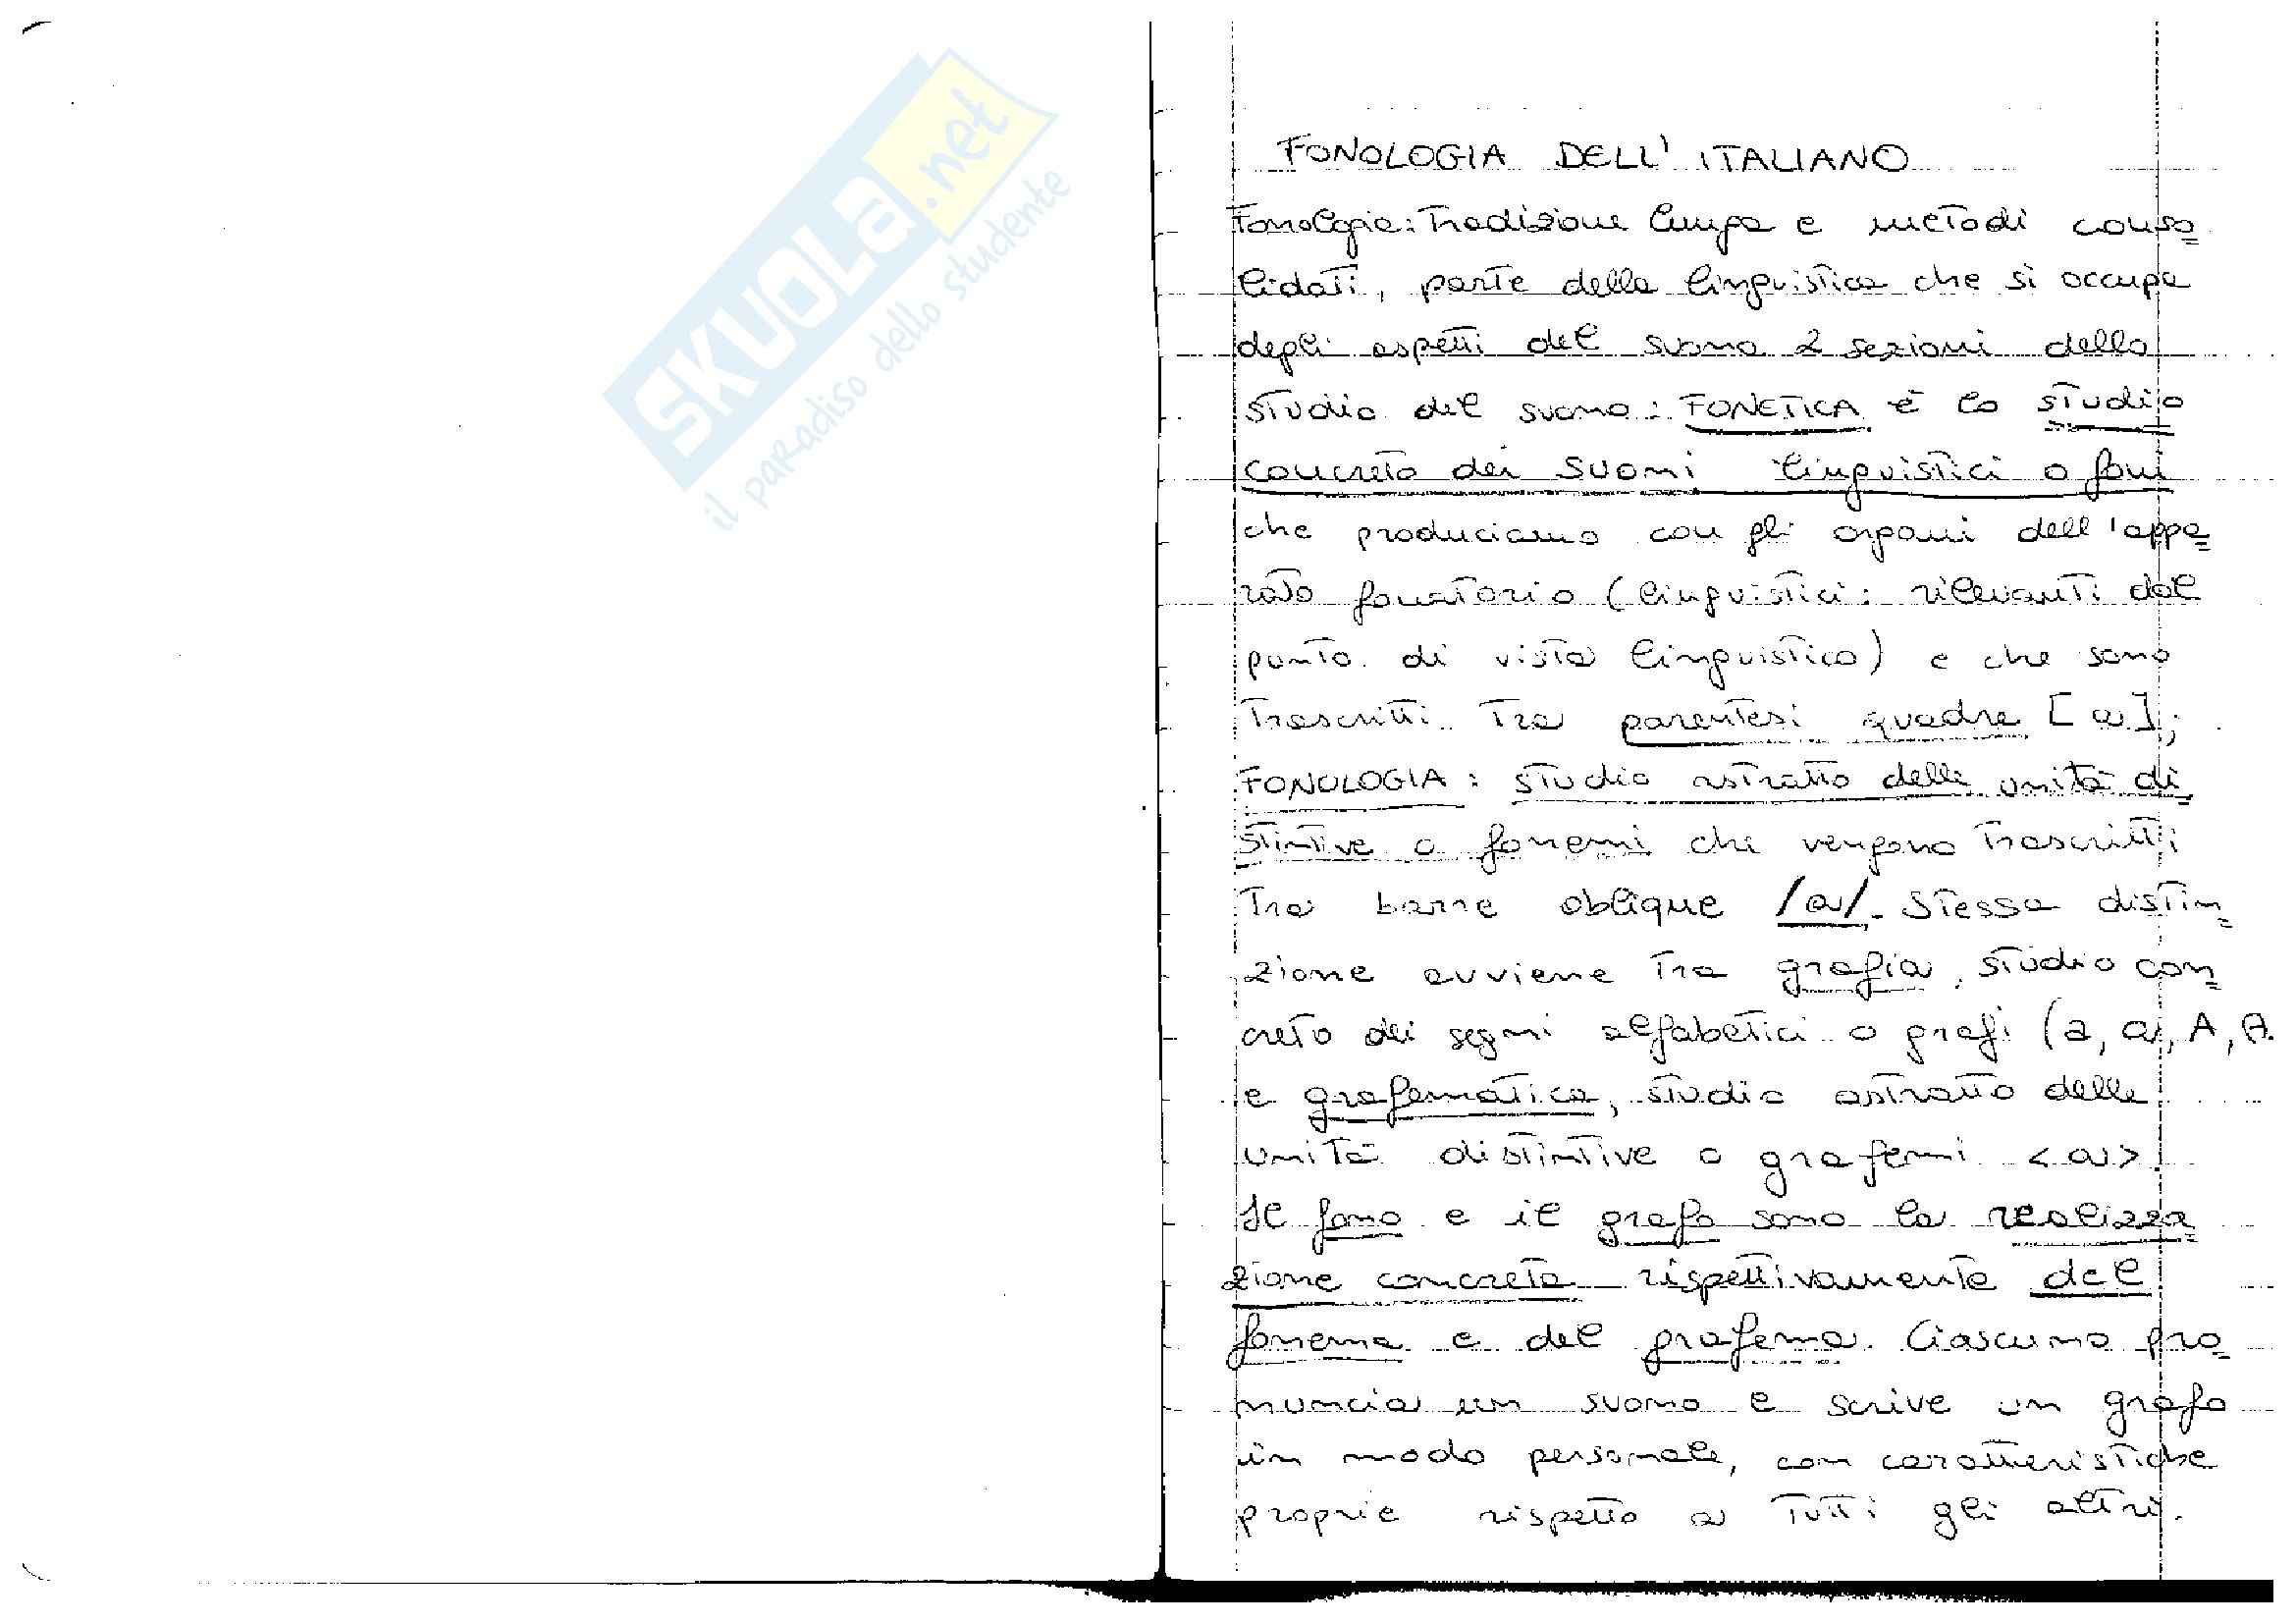 SKUOLA.net
il paradiso dello studente
FONOLOGIA DELL' ITALIANO
Fonologia: Tradizione lunga e metodi conso=
lidati, parte della linguistica che si occupa
degli aspetti del suono 2 sezioni dello
studio del suono: FONETICA è lo studio
concreto dei suoni linguistici o foni
che produciamo con gli organi dell'appa=
rato fonatorio (linguistici: rilevanti dal
punto di vista linguistico) e che sono
Trascritti Tra parentesi quadre [a];
FONOLOGIA: studio astratto delle unità di=
stintive o fonemi che vengono Trascritti
Tra barre oblique /a/. Stessa distin=
zione avviene Tra grafia, studio con=
creto dei segni alfabetici o grafi (a, a, A, A
e grafematica, studio astratto delle
unità distintive o grafemi <a>.
Il fono e il grafo sono la realizza=
zione concreta rispettivamente del
fonema e del grafema. Ciascuno pro=
nuncia un suono e scrive un grafo
in modo personale, con caratteristiche
proprie rispetto a Tutti gli altri.